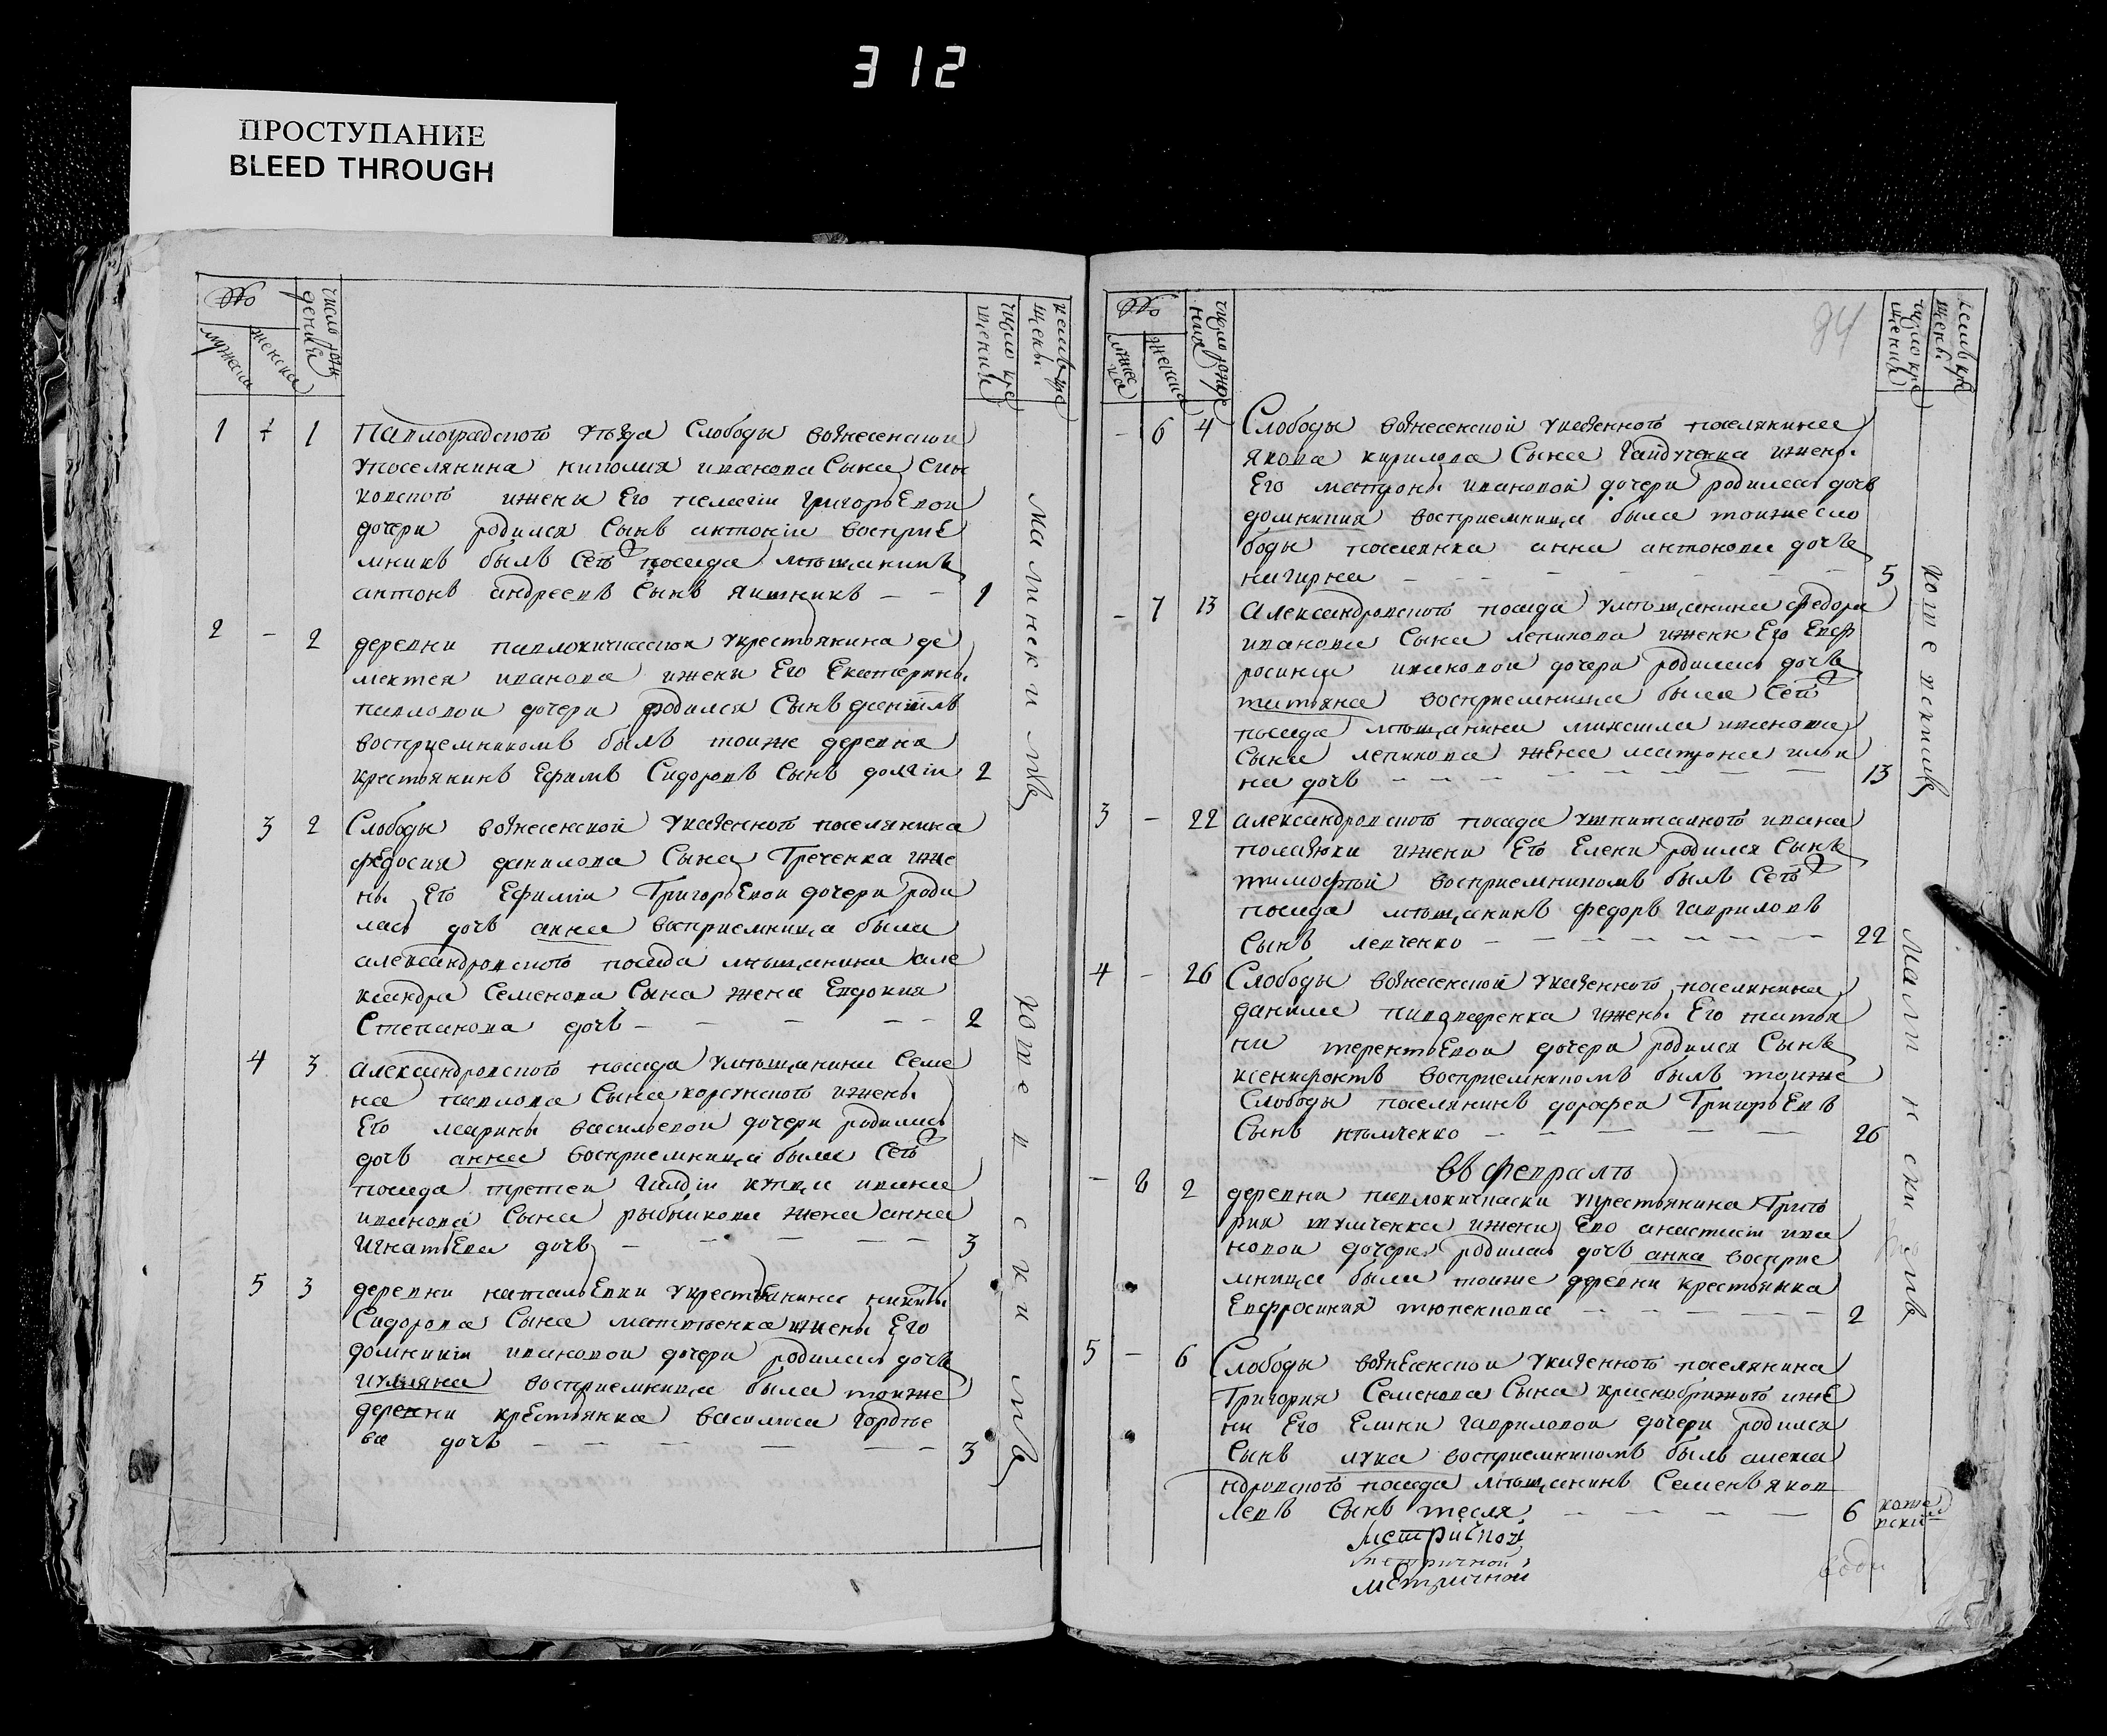 312
ПРОСТУПАНИЕ
BLEED THROUGH
№
мужеска
женска
число рож
дения
число кре
щения
кемъ кре
щены
1 1 Павлоградского уезда Слободы вознесенской
упоселянина иванова Сына
ижены Его пелагии григорьЕвой
дочери родился Сынъ антоній восприЕ
мникъ былъ Сего посада мѣщанинъ
антонъ андреевъ Сынъ - - 1
2 - 2 деревни укрестьянина де
ментея иванова ижены Его Екатерины
павловой дочери родился Сынъ даніилъ
восприемникомъ былъ тоиже деревни
крестьянинъ Ефимъ Сидоровъ Сынъ 2
3 2 Слободы вознесенской указенного поселянина
федосия данилова Сына Греченка иже
ны Его Ефиміи ГригорьЕвой дочери роди
лась дочь анна восприемница была
александровского посада мѣщанина але
ксандра Семенова Сына жена Евдокия
Степанова дочь - - - - - 2
4 3 александровского посада умѣщанина Семе
на павлова Сына корсунского ижены
Его марины васильевой дочери родилась
дочь анна восприемница была Сего
посада третей гилдіи купца ивана
иванова Сына рыбникова жена анна
ИгнатьЕва дочь - - - - - 3
5 3 деревни натальЕвки укрестьянина никиты
Сидорова Сына ижены Его
домникіи ивановой дочери родилась дочь
иулияна восприемница была тоиже
деревни крестьянка василиса гордѣе
ва дочь - - - - - 3
Малинскимъ
Кошевскимъ
94
№
женска
число рожде
ния
число кре
щения
кемъ кре
щены
- 6 4 Слободы вознесенской указенного поселянина
якова кирилова Сына Гайдученка ижены
Его матроны ивановой дочери родилась дочь
домникия восприемница была тоиже сло
боды поселянка анна антонова дочь
- - - - - 5
- 7 13 Александровского посада умѣщанина федора
иванова Сына лепихова ижены Его Евф
росинии ивановой дочери родилась дочь
татьяна восприемница была Сего
посада мѣщанина михаила иванова
Сына лепихова жЕна матрона
на дочь - - - - - 13
3 - 22 александровского посада ивана
ижены Его Елены родился Сынъ
тимофей восприемникомъ былъ Сего
посада мѣщанинъ федоръ гавриловъ
Сынъ левченко - - - - - 22
4 - 26 Слободы вознесенской указенного поселянина
данила ижены Его
ны терентьЕвой дочери родился Сынъ
ксенофонтъ восприемникомъ былъ тоиже
Слободы поселянинъ дорофей ГригорьЕвъ
Сынъ - - - - - 26
въ февралѣ
- 8 2 деревни укрестьянина Григо
рия ижены Его анастасіи ива
новой дочери родилась дочь анна восприе
мница была тоиже деревни крестьянка
Евфросиния - - - - - 2
5 - 6 Слободы вознЕсенской указенного поселянина
Григория Семенова Сына ижЕ
ны Его гавриловой дочери родился
Сынъ лука восприемникомъ былъ алекса
ндровского посада мѣщанинъ Семенъ яков
левъ Сынъ тесля - - - - 6 коше
вским
Кошевскимъ
Малинскимъ
метричной
метричной
метричной